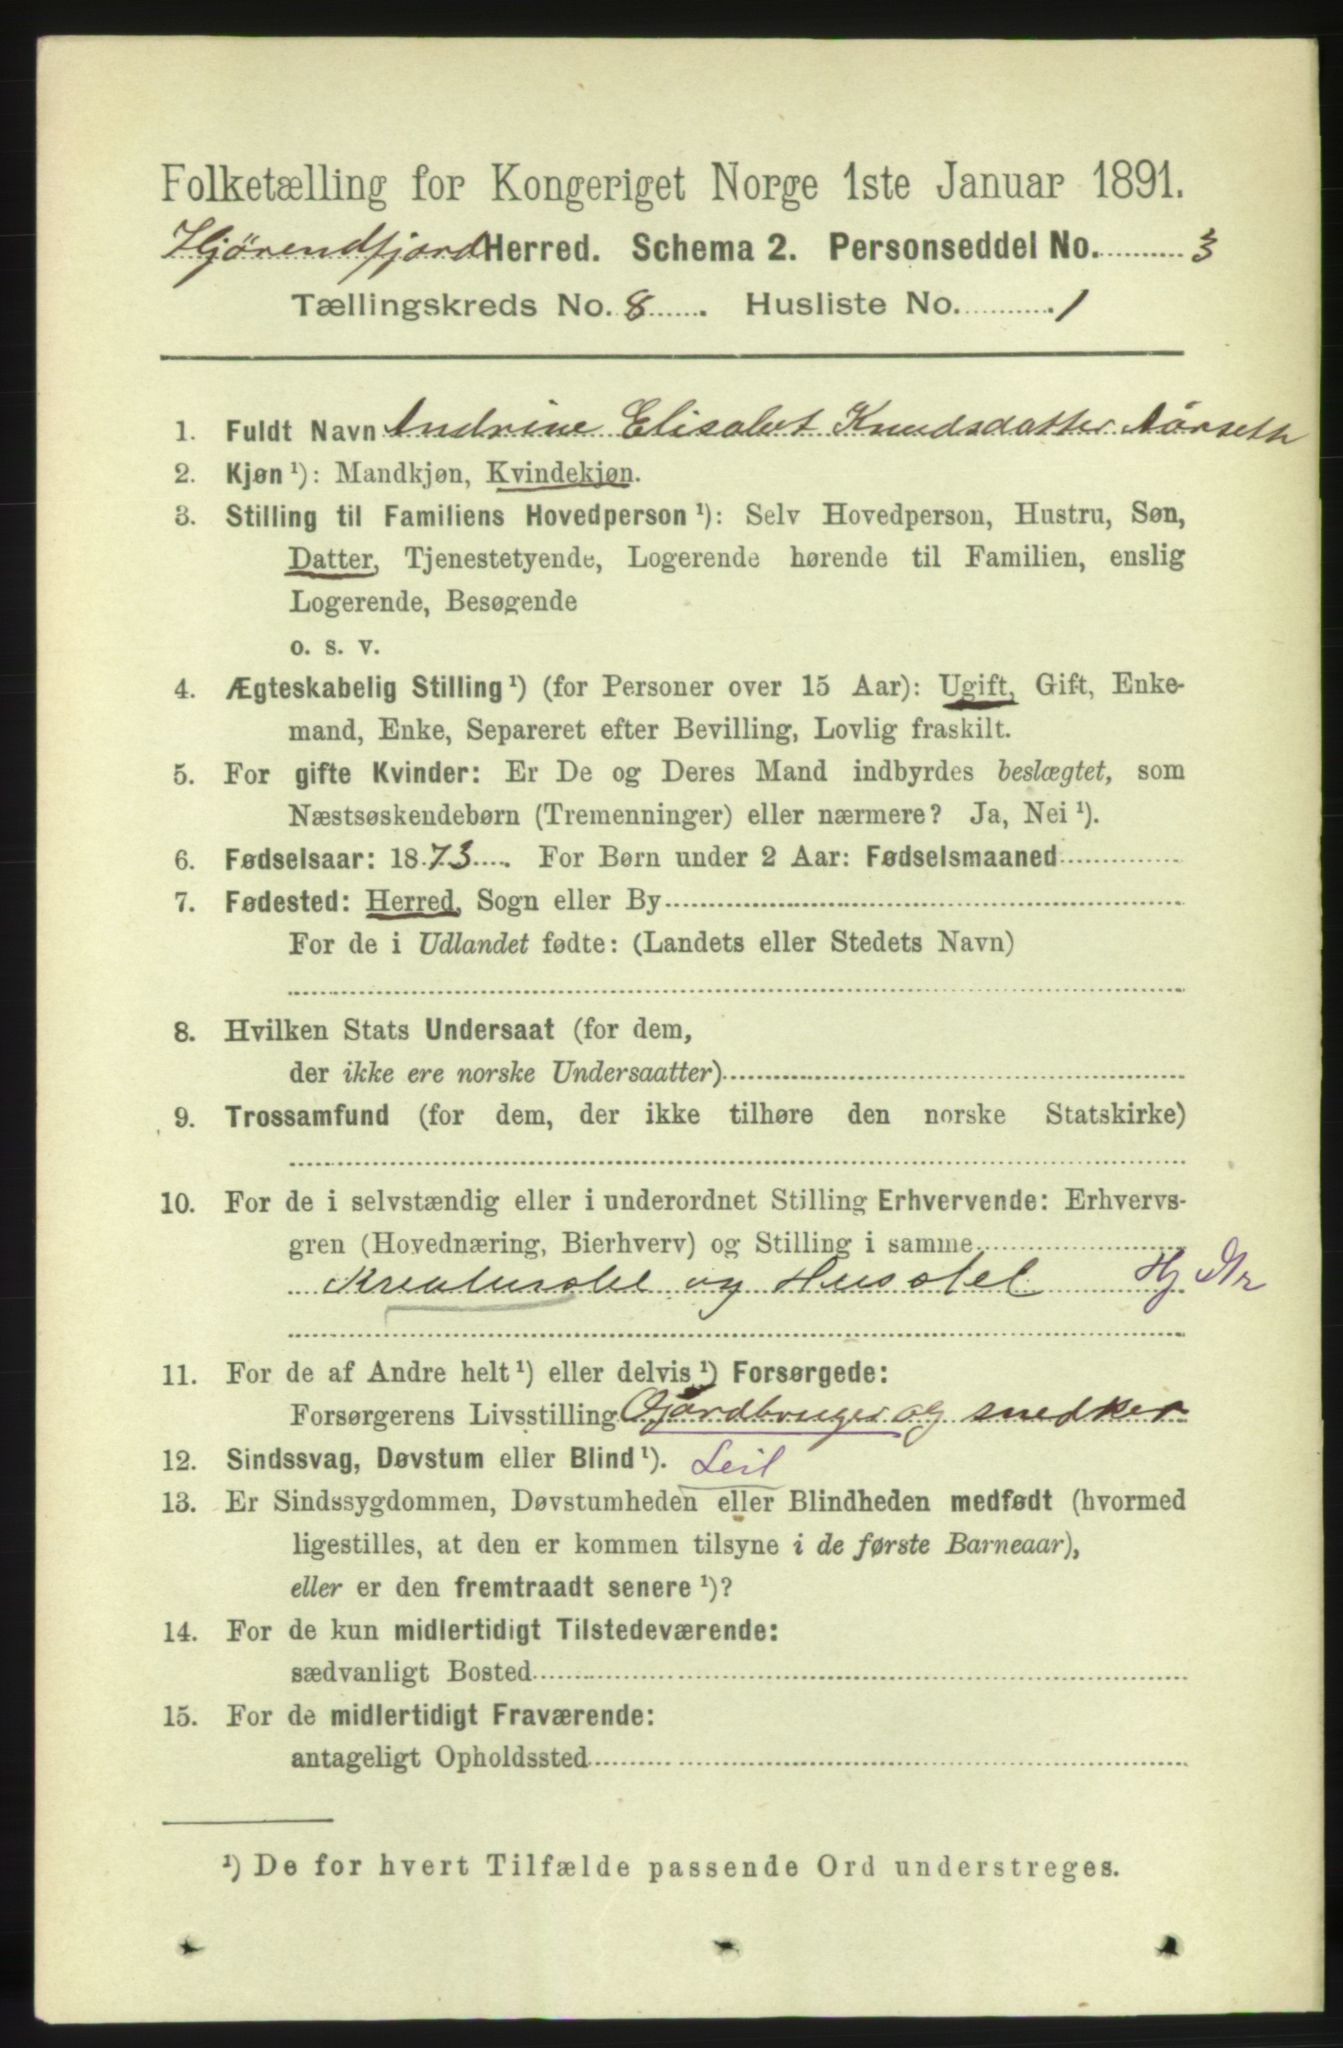 Folketælling for Kongeriget Norge 1ste Januar 1891.
Hjørendfjord Herred. Schema 2. Personseddel No. 3
Tællingskreds No. 8. Husliste No. 1
1. Fuldt Navn Andrine Elisabet Knudsdatter Aarseth
2. Kjøn ¹): Mandkjøn, Kvindekjøn.
3. Stilling til Familiens Hovedperson ¹): Selv Hovedperson, Hustru, Søn,
Datter, Tjenestetyende, Logerende hørende til Familien, enslig
Logerende, Besøgende
o. s. v.
4. Ægteskabelig Stilling ¹) (for Personer over 15 Aar): Ugift, Gift, Enke-
mand, Enke, Separeret efter Bevilling, Lovlig fraskilt.
5. For gifte Kvinder: Er De og Deres Mand indbyrdes beslægtet, som
Næstsøskendebørn (Tremenninger) eller nærmere? Ja, Nei ¹).
6. Fødselsaar: 1873. For Børn under 2 Aar: Fødselsmaaned
7. Fødested: Herred, Sogn eller By
For de i Udlandet fødte: (Landets eller Stedets Navn)
8. Hvilken Stats Undersaat (for dem,
der ikke ere norske Undersaatter)
9. Trossamfund (for dem, der ikke tilhøre den norske Statskirke)
10. For de i selvstændig eller i underordnet Stilling Erhvervende: Erhvervs-
gren (Hovednæring, Bierhverv) og Stilling i samme
Kreaturstel og Husstel Hj
11. For de af Andre helt ¹) eller delvis ¹) Forsørgede:
Forsørgerens Livsstilling Gjardbruger og snedker
12. Sindssvag, Døvstum eller Blind ¹). Leil
13. Er Sindssygdommen, Døvstumheden eller Blindheden medfødt (hvormed
ligestilles, at den er kommen tilsyne i de første Barneaar),
eller er den fremtraadt senere ¹)?
14. For de kun midlertidigt Tilstedeværende:
sædvanligt Bosted
15. For de midlertidigt Fraværende:
antageligt Opholdssted
¹) De for hvert Tilfælde passende Ord understreges.